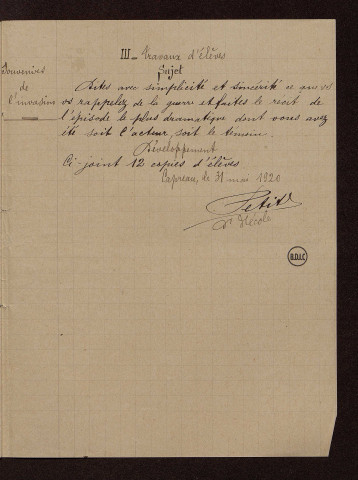 III_ Travaux d'élèves
Sujet
Souvenirs
de
l'invasion
Dites avec simplicité et sincérité ce que vs
vs rappelez de la guerre et faites le récit de
l'épisode le plus dramatique dont vous avez
été soit l'acteur, soit le témoin.
Développement
Ci-joint 12 copies d'élèves
le 31 mai 1920
Petit
B.D.I.C